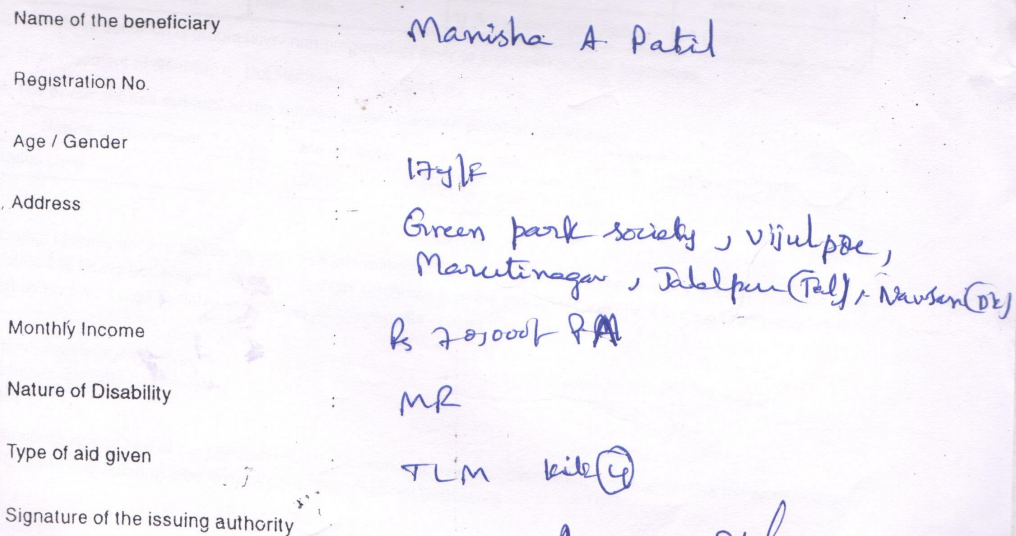 Name of the beneficiary : Manisha A Patil
Registration No. :
Age / Gender : 17y/F
Address :- Green park society, Vijulpore,
Marutinagar, Jalalpur (Tal), Navsari (Dt)
Monthly Income : Rs 70,000/- PA
Nature of Disability : MR
Type of aid given TLM kit (4)
Signature of the issuing authority